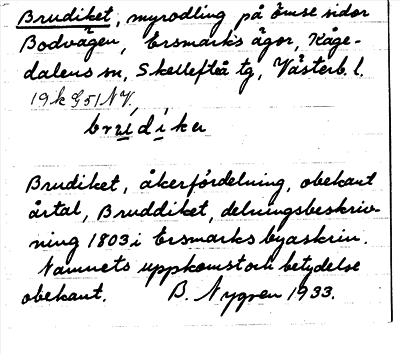 Brudiket, myrodling på ömse sidor
Bodvägen, Ersmarks ägor, Kåge-
dalens sn, Skellefteå tg, Västerb. l.
19k G 51 N.V.
brúdiker
Brudiket, åkerfördelning, obekant
årtal, Bruddiket, delningsbeskriv-
ning 1803 i Ersmarks byaskrin.
Namnets uppkomst och betydelse
obekant. B. Nygren 1933.